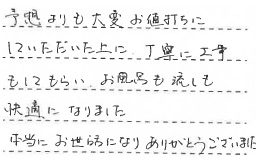 予想よりも大変お値打ちに
していただいた上に、丁寧に工事
もしてもらい、お風呂も流しも
快適になりました
本当にお世話になりありがとうございました